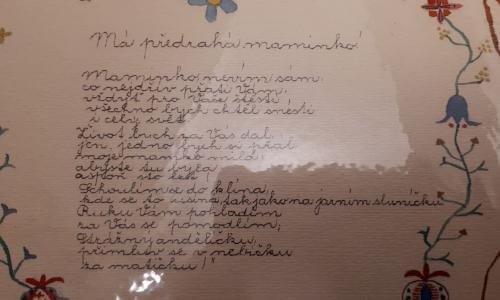 Má předrahá maminko!
Maminko, nevím sám,
co nejdřív přáti Vám,
vždyť pro Vaše štěstí
všechno bych chtěl snésti
i celý svět.
Život bych za Vás dal,
jen jedno bych si přál
moje mamko milá,
abyste tu byla
aspoň sto let!
Schoulím se do klína,
kde se to usíná, tak jako na jarním sluníčku
Ruku Vám pohladím
za Vás se pomodlím;
Strážný andělíčku,
přimluv se v nebíčku
za matičku!